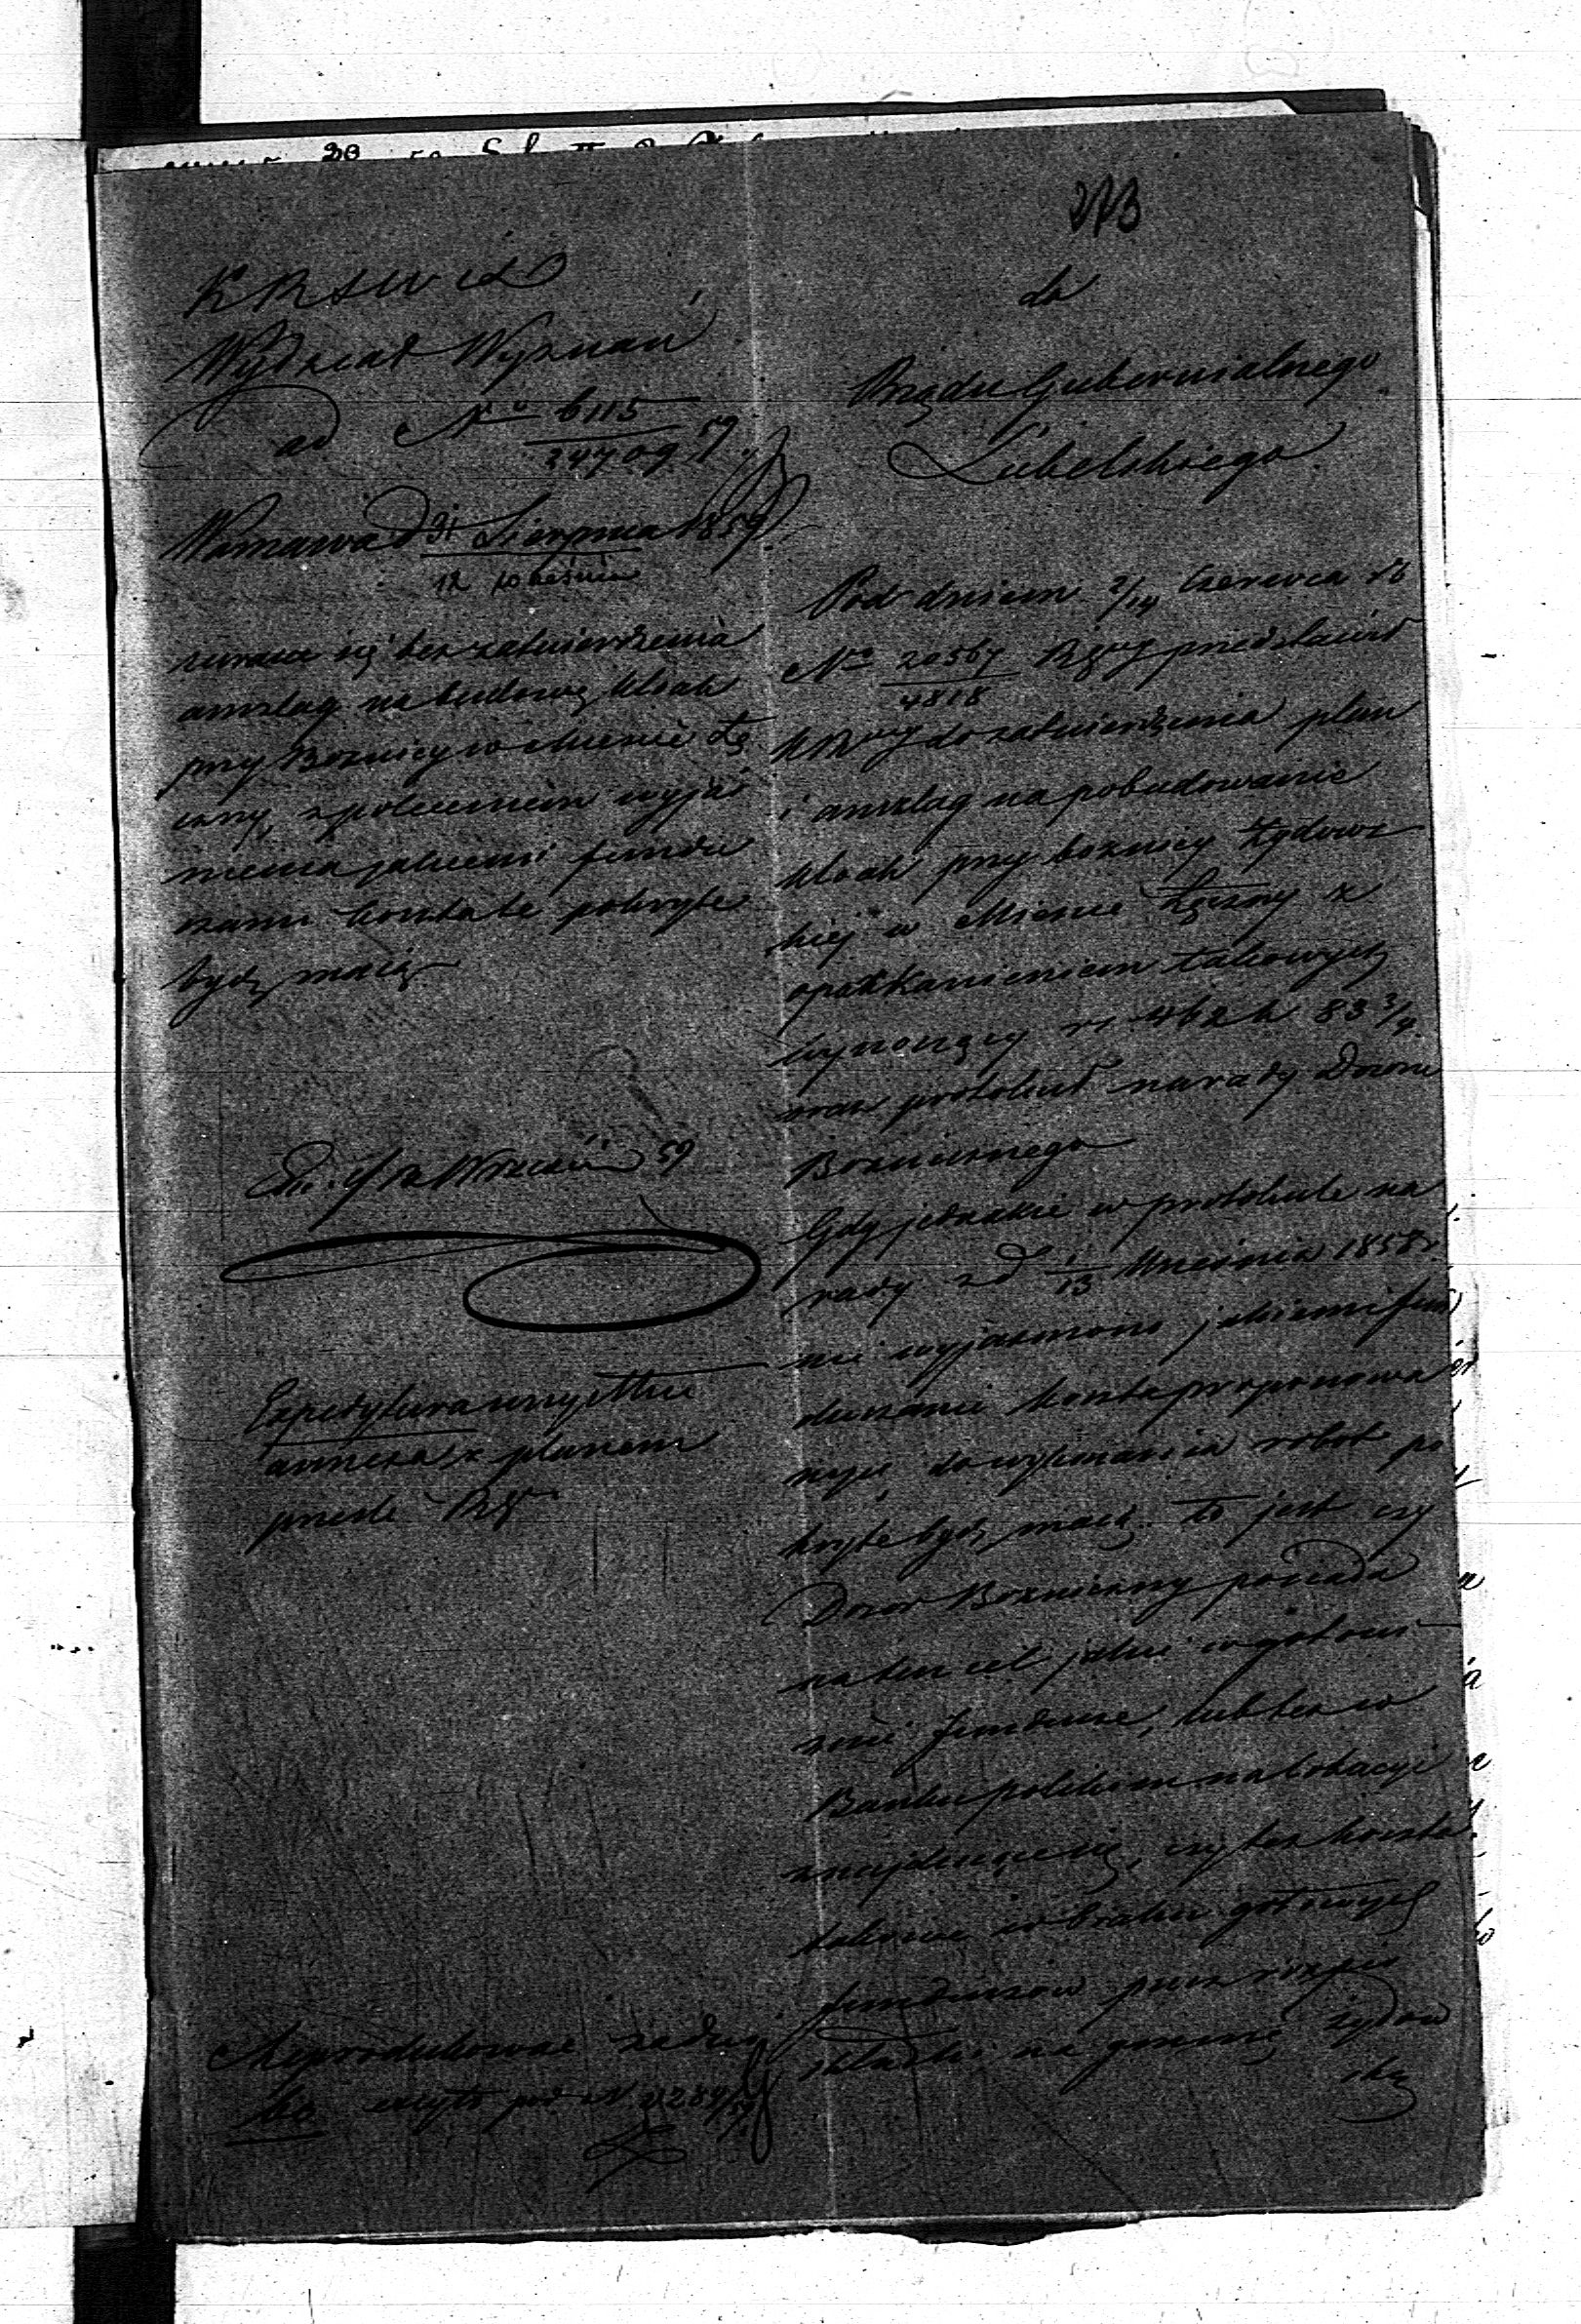 KRSWiD
Wydział Wyznań
ad No 6115/24709 59
Warszawa d 31 Sierpnia 1859
12 Września
zwraca się bez zatwierdzenia
anszlag na budowę kloak
przy Bożnicy w Mieście Łę
czny, z poleceniem wyjaś
nienia jakiemi fundu
szami koszta te pokryte
bydź maią
Września 59
Expedytura wszystkie
annexa z planem
prześle RG
Reprodukować
czyst. pod N
273
do
Rządu Gubernialnego
Lubelskiego
Pod dniem 2/14 Czerwca rb
No 20567/4818 Rząd przedstawił
KRząd do zatwierdzenia plan
i anszlag na pobudowanie
kloak przy bożnicy Żydows
kiej w Mieście Łęczny z
oparkanieniem takowych
wynoszący rs 462 k 83 3/4
oraz protokuł narady Dozoru
Bożniczego
Gdy jednakże w protokule na
rady z d 1/13 Września 1858 r
nie wyjaśniono jakiemi fun
duszami koszta proponowa
nych do wykonania robot po
kryte bydź maią, to jest czy
Dozor Bożniczny posiada
na ten cel jakie w gotowi
źnie fundusze, lub też w
Banku polskim na lokacyi
znajdujące się, czy też koszta
takowe w braku gotowych
funduszow przez rozpis
składki na gminę żydow
ską